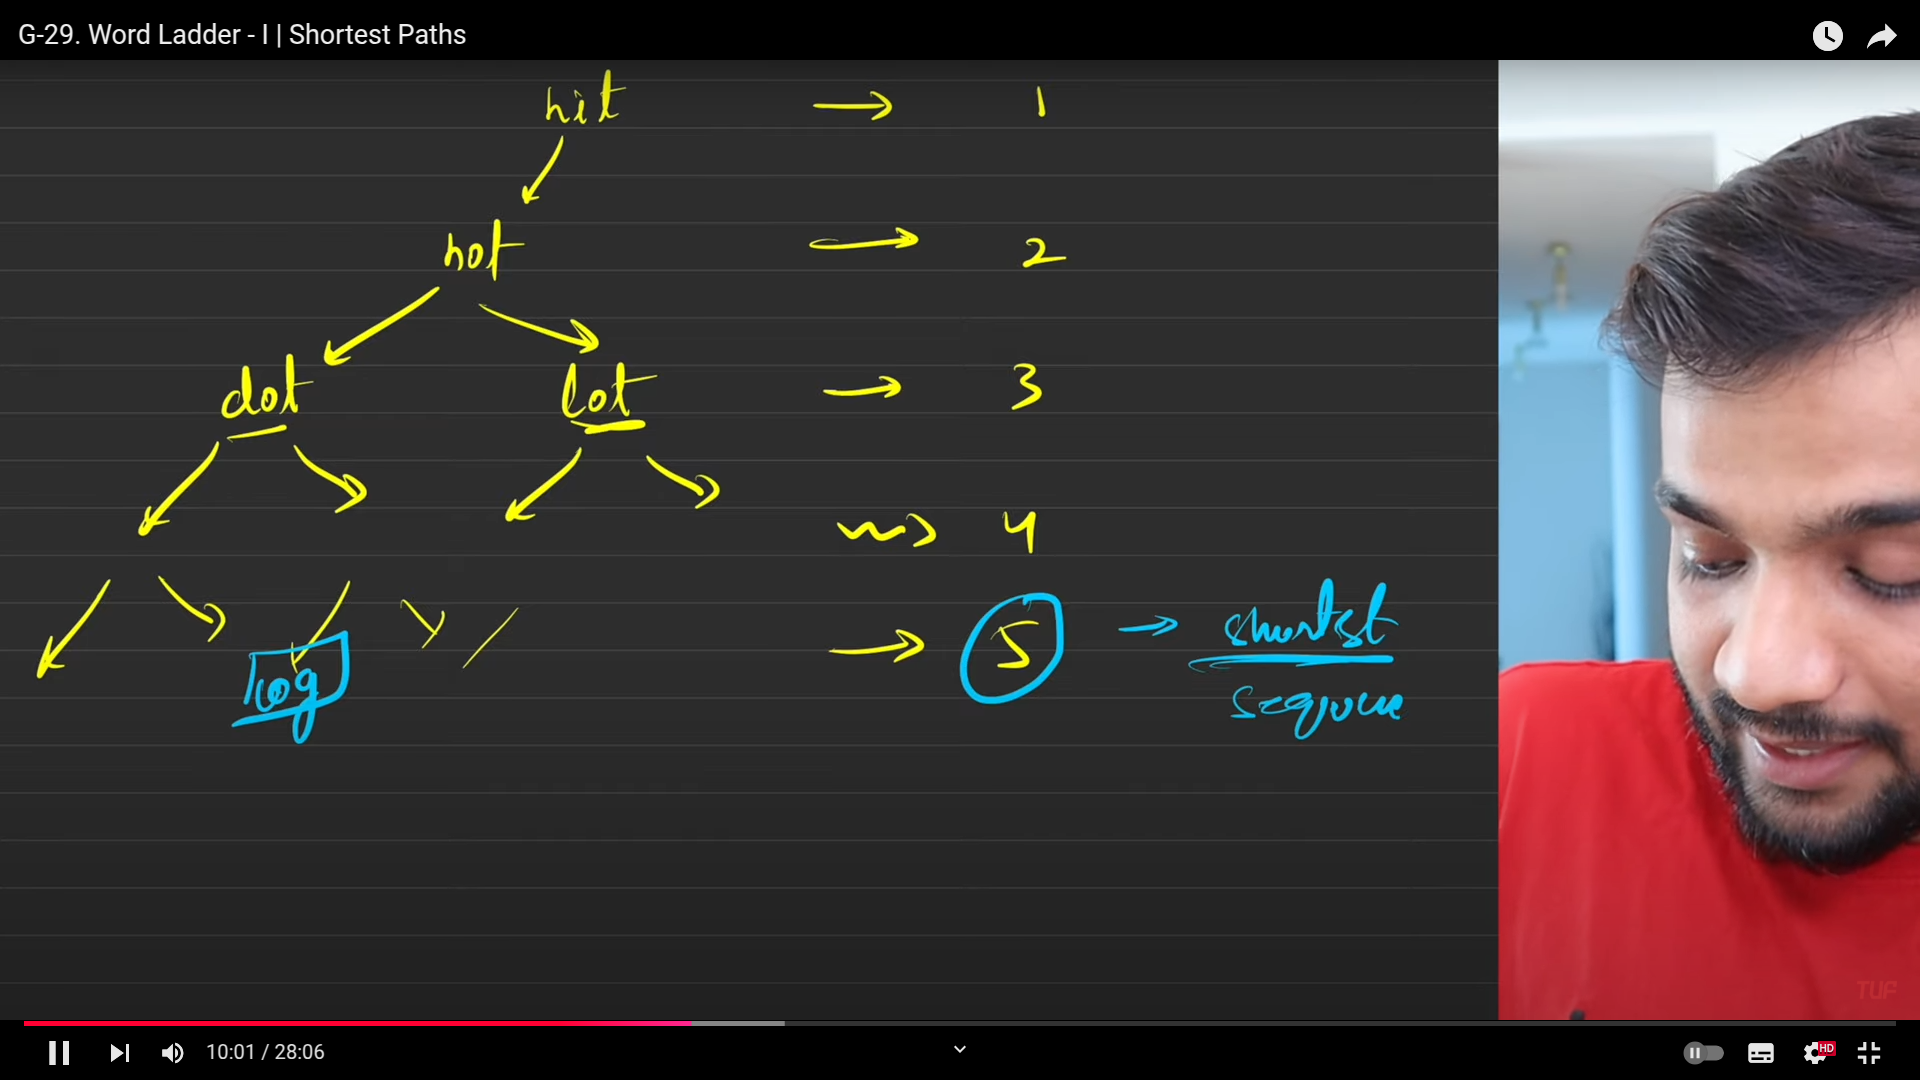 G-29. Word Ladder - I | Shortest Paths
hit → 1
hot → 2
dot lot → 3
4
cog → 5 → shortest
TUF
10:01 / 28:06
HD